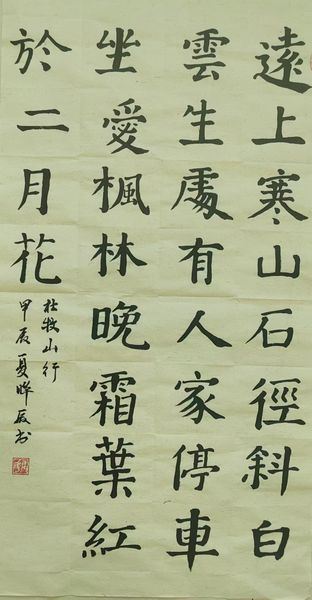 遠上寒山石徑斜白
雲生處有人家停車
坐愛楓林晚霜葉紅
於二月花
杜牧山行
甲辰夏书